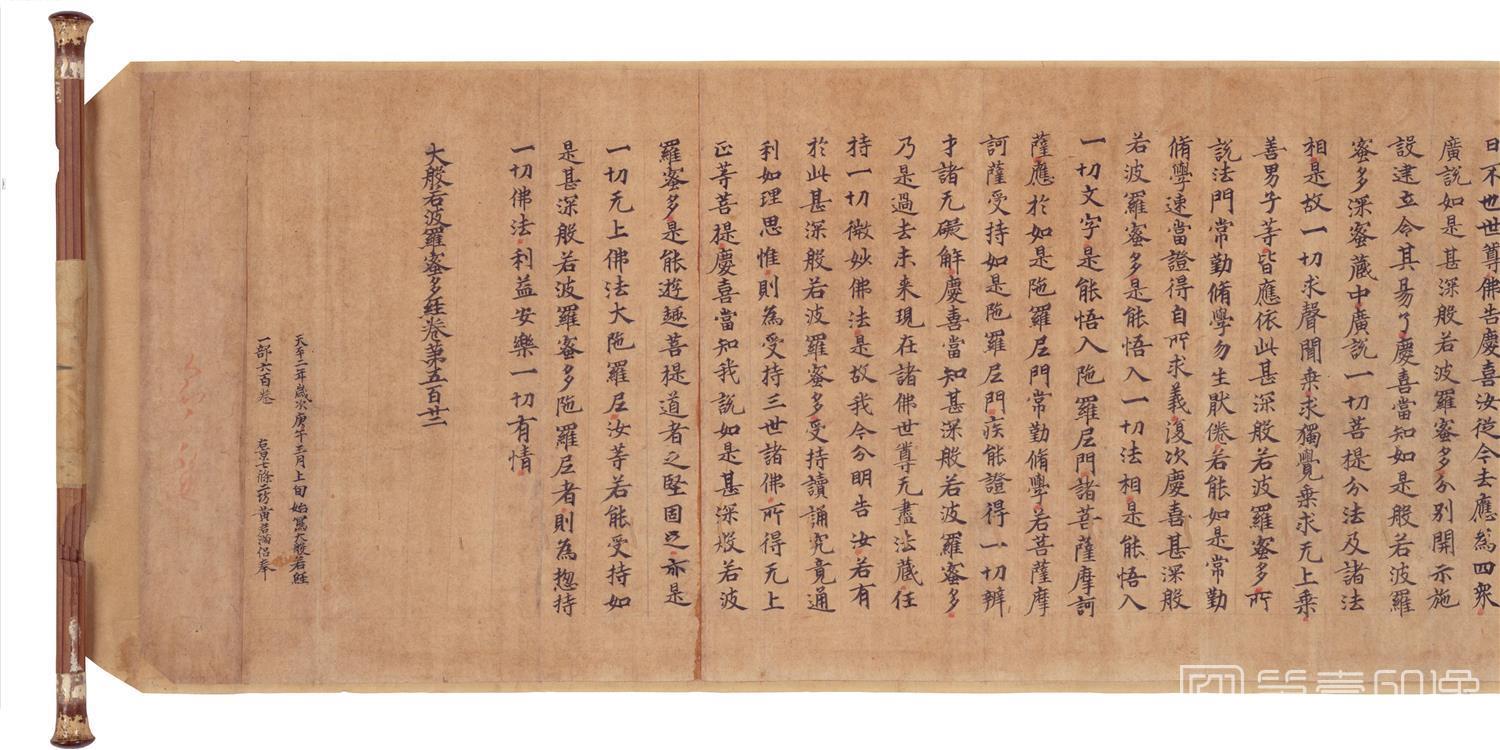 曰不也世尊佛告慶喜汝從今去應為四眾
廣說如是甚深般若波羅蜜多分別開示施
設建立令其易了慶喜當知如是般若波羅
蜜多深蜜藏中廣說一切菩提分法及諸法
相是故一切求聲聞乘求獨覺乘求无上乘
善男子等皆應依此甚深般若波羅蜜多所
說法門常勤脩學勿生猒倦若能如是常勤
脩學速當證得自所求義復次慶喜甚深般
若波羅蜜多是能悟入一切法相是能悟入
一切文字是能悟入陁羅尼門諸菩薩摩訶
薩應於如是陁羅尼門常勤脩學若菩薩摩
訶薩受持如是陁羅尼門疾能證得一切辨
才諸无礙解慶喜當知甚深般若波羅蜜多
乃是過去未来現在諸佛世尊无盡法藏任
持一切微妙佛法是故我今分明告汝若有
於此甚深般若波羅蜜多受持讀誦究竟通
利如理思惟則為受持三世諸佛所得无上
正等菩提慶喜當知我說如是甚深般若波
羅蜜多是能遊趣菩提道者之堅固足亦是
一切无上佛法大陁羅尼汝等若能受持如
是甚深般若波羅蜜多陁羅尼者則為惣持
一切佛法利益安樂一切有情
大般若波羅蜜多経卷第五百卅二
天平二年歲次庚午三月上旬始寫大般若経
一部六百卷 右京七條二坊黃君滿侶奉